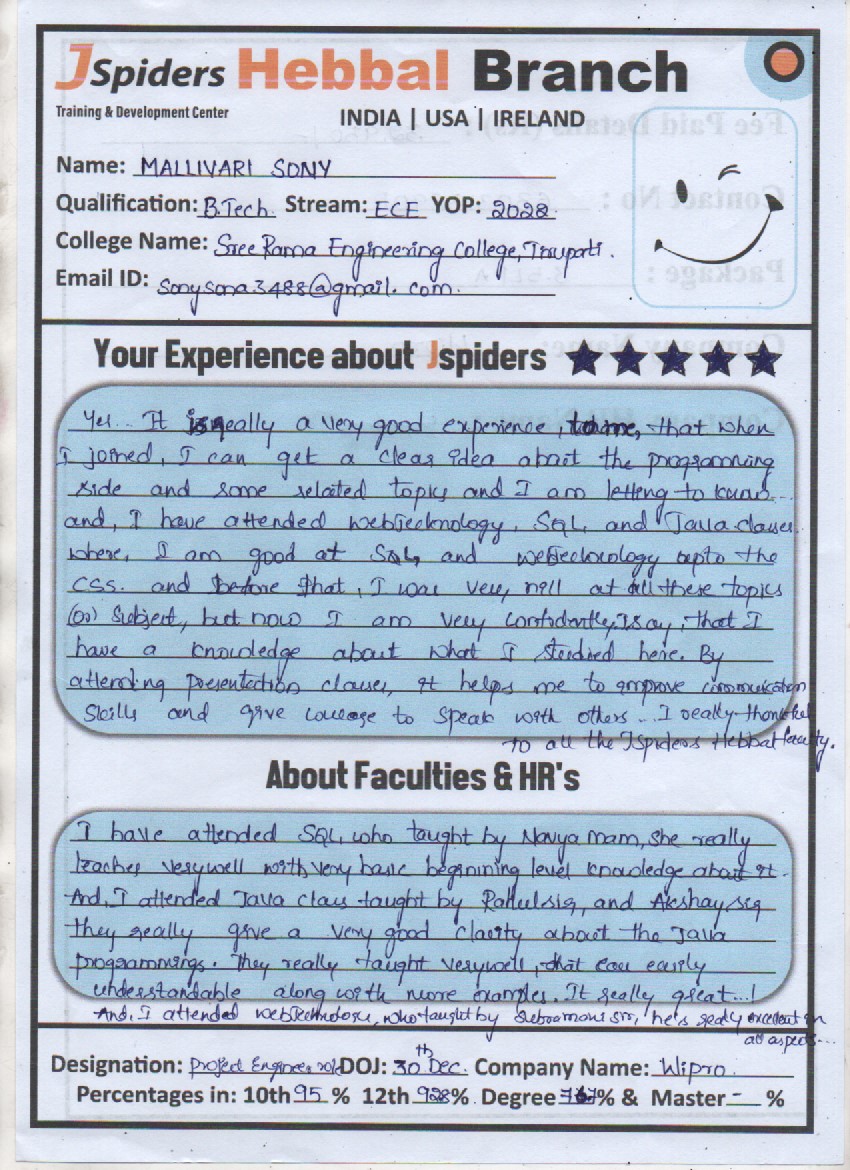 JSpiders Hebbal Branch
Training & Development Center
INDIA | USA | IRELAND
Name: MALLIVARI SONY
Qualification: B.Tech. Stream: ECE YOP: 2022
College Name: Sree Rama Engineering College, Tirupati.
Email ID: sonysona3488@gmail.com.
Your Experience about Jspiders
Yes... It is really a very good experience, to me, that when
I joined, I can get a clear idea about the programming
side and some related topics and I am letting to know...
and, I have attended webTecknology, SQL, and Java classes.
where, I am good at SQL, and webTechnology upto the
CSS. and before that, I was very nill at all these topics
(or) Subject, but now I am very confidently, I say, that I
have a knowledge about what I studied here. By
attending presentation classes, it helps me to improve communication
Skills and give courage to speak with others ... I really thankful
to all the JSpiders Hebbal faculty.
About Faculties & HR's
I have attended SQL, who taught by Navya mam, she really
teaches verywell with very basic beginining level knowledge about it.
And, I attended Java class taught by Rahul sir, and Akshay sir
they really give a very good clarity about the Java
programmings. They really taught verywell, that can easily
understandable along with more examples. It really great...!
And, I attended webTechnology, who taught by Subramani sir, he's really excellent in
all aspects...
Designation: Project Engineer DOJ: 30th Dec. Company Name: Wipro.
Percentages in: 10th 95 % 12th 92.8 % Degree % & Master - %